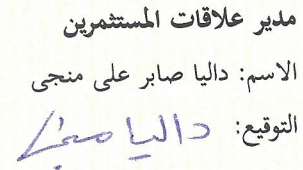 مدير علاقات المستثمرين
الاسم: داليا صابر على منجى
التوقيع: داليا منجى